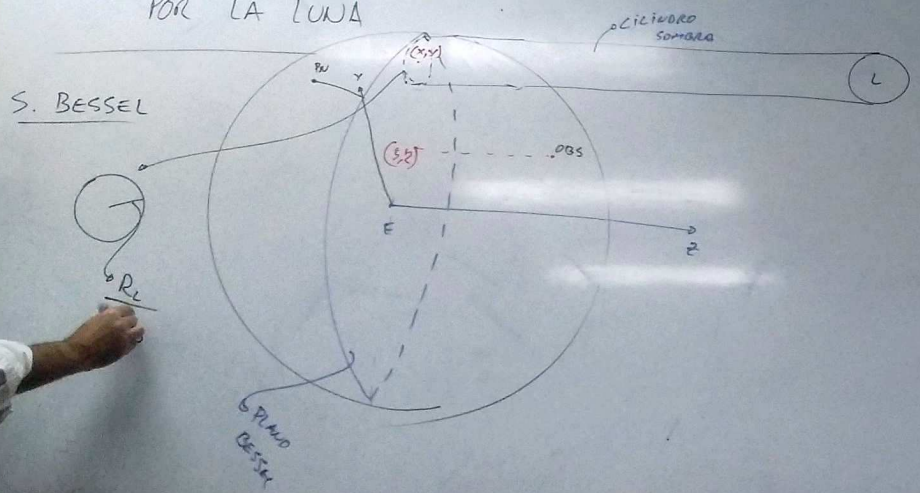 POR LA LUNA
CILINDRO
SOMBRA
(x,y)
PN
Y
L
S. BESSEL
OBS
E
Z
R_L
PLANO
BESSEL